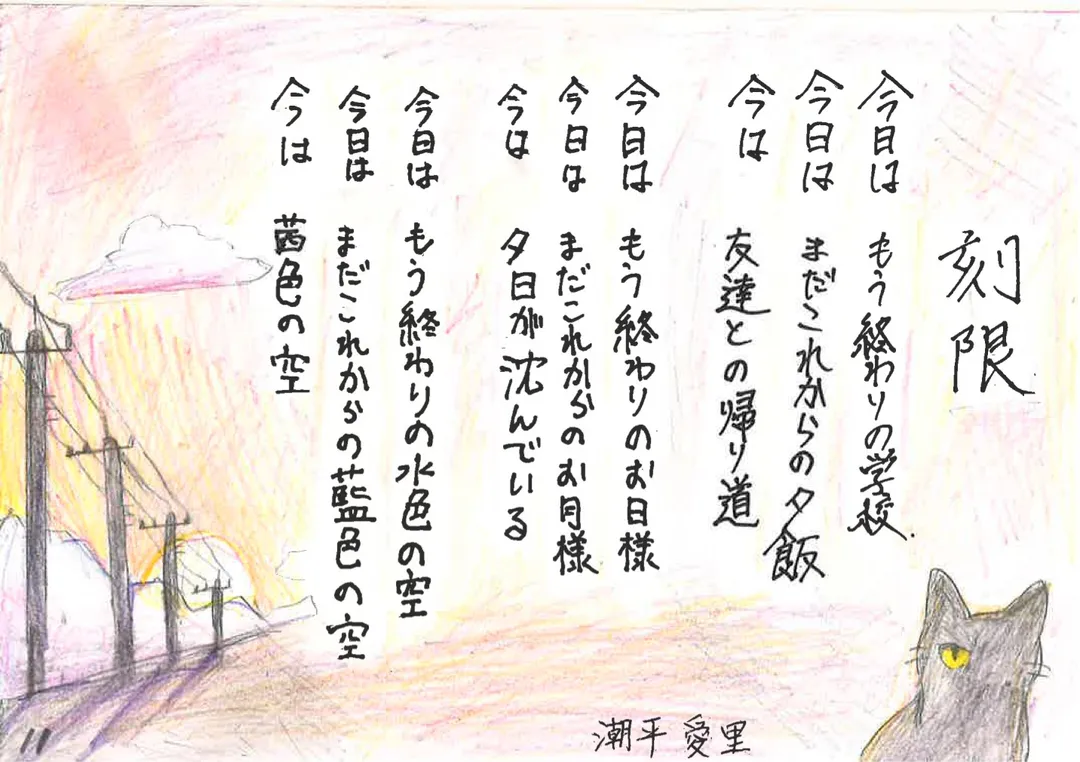 刻限
今日は もう終わりの学校
今日は まだこれからの夕飯
今は 友達との帰り道
今日は もう終わりのお日様
今日は まだこれからのお月様
今は 夕日が沈んでいる
今日は もう終わりの水色の空
今日は まだこれからの藍色の空
今は 茜色の空
潮平 愛里
11